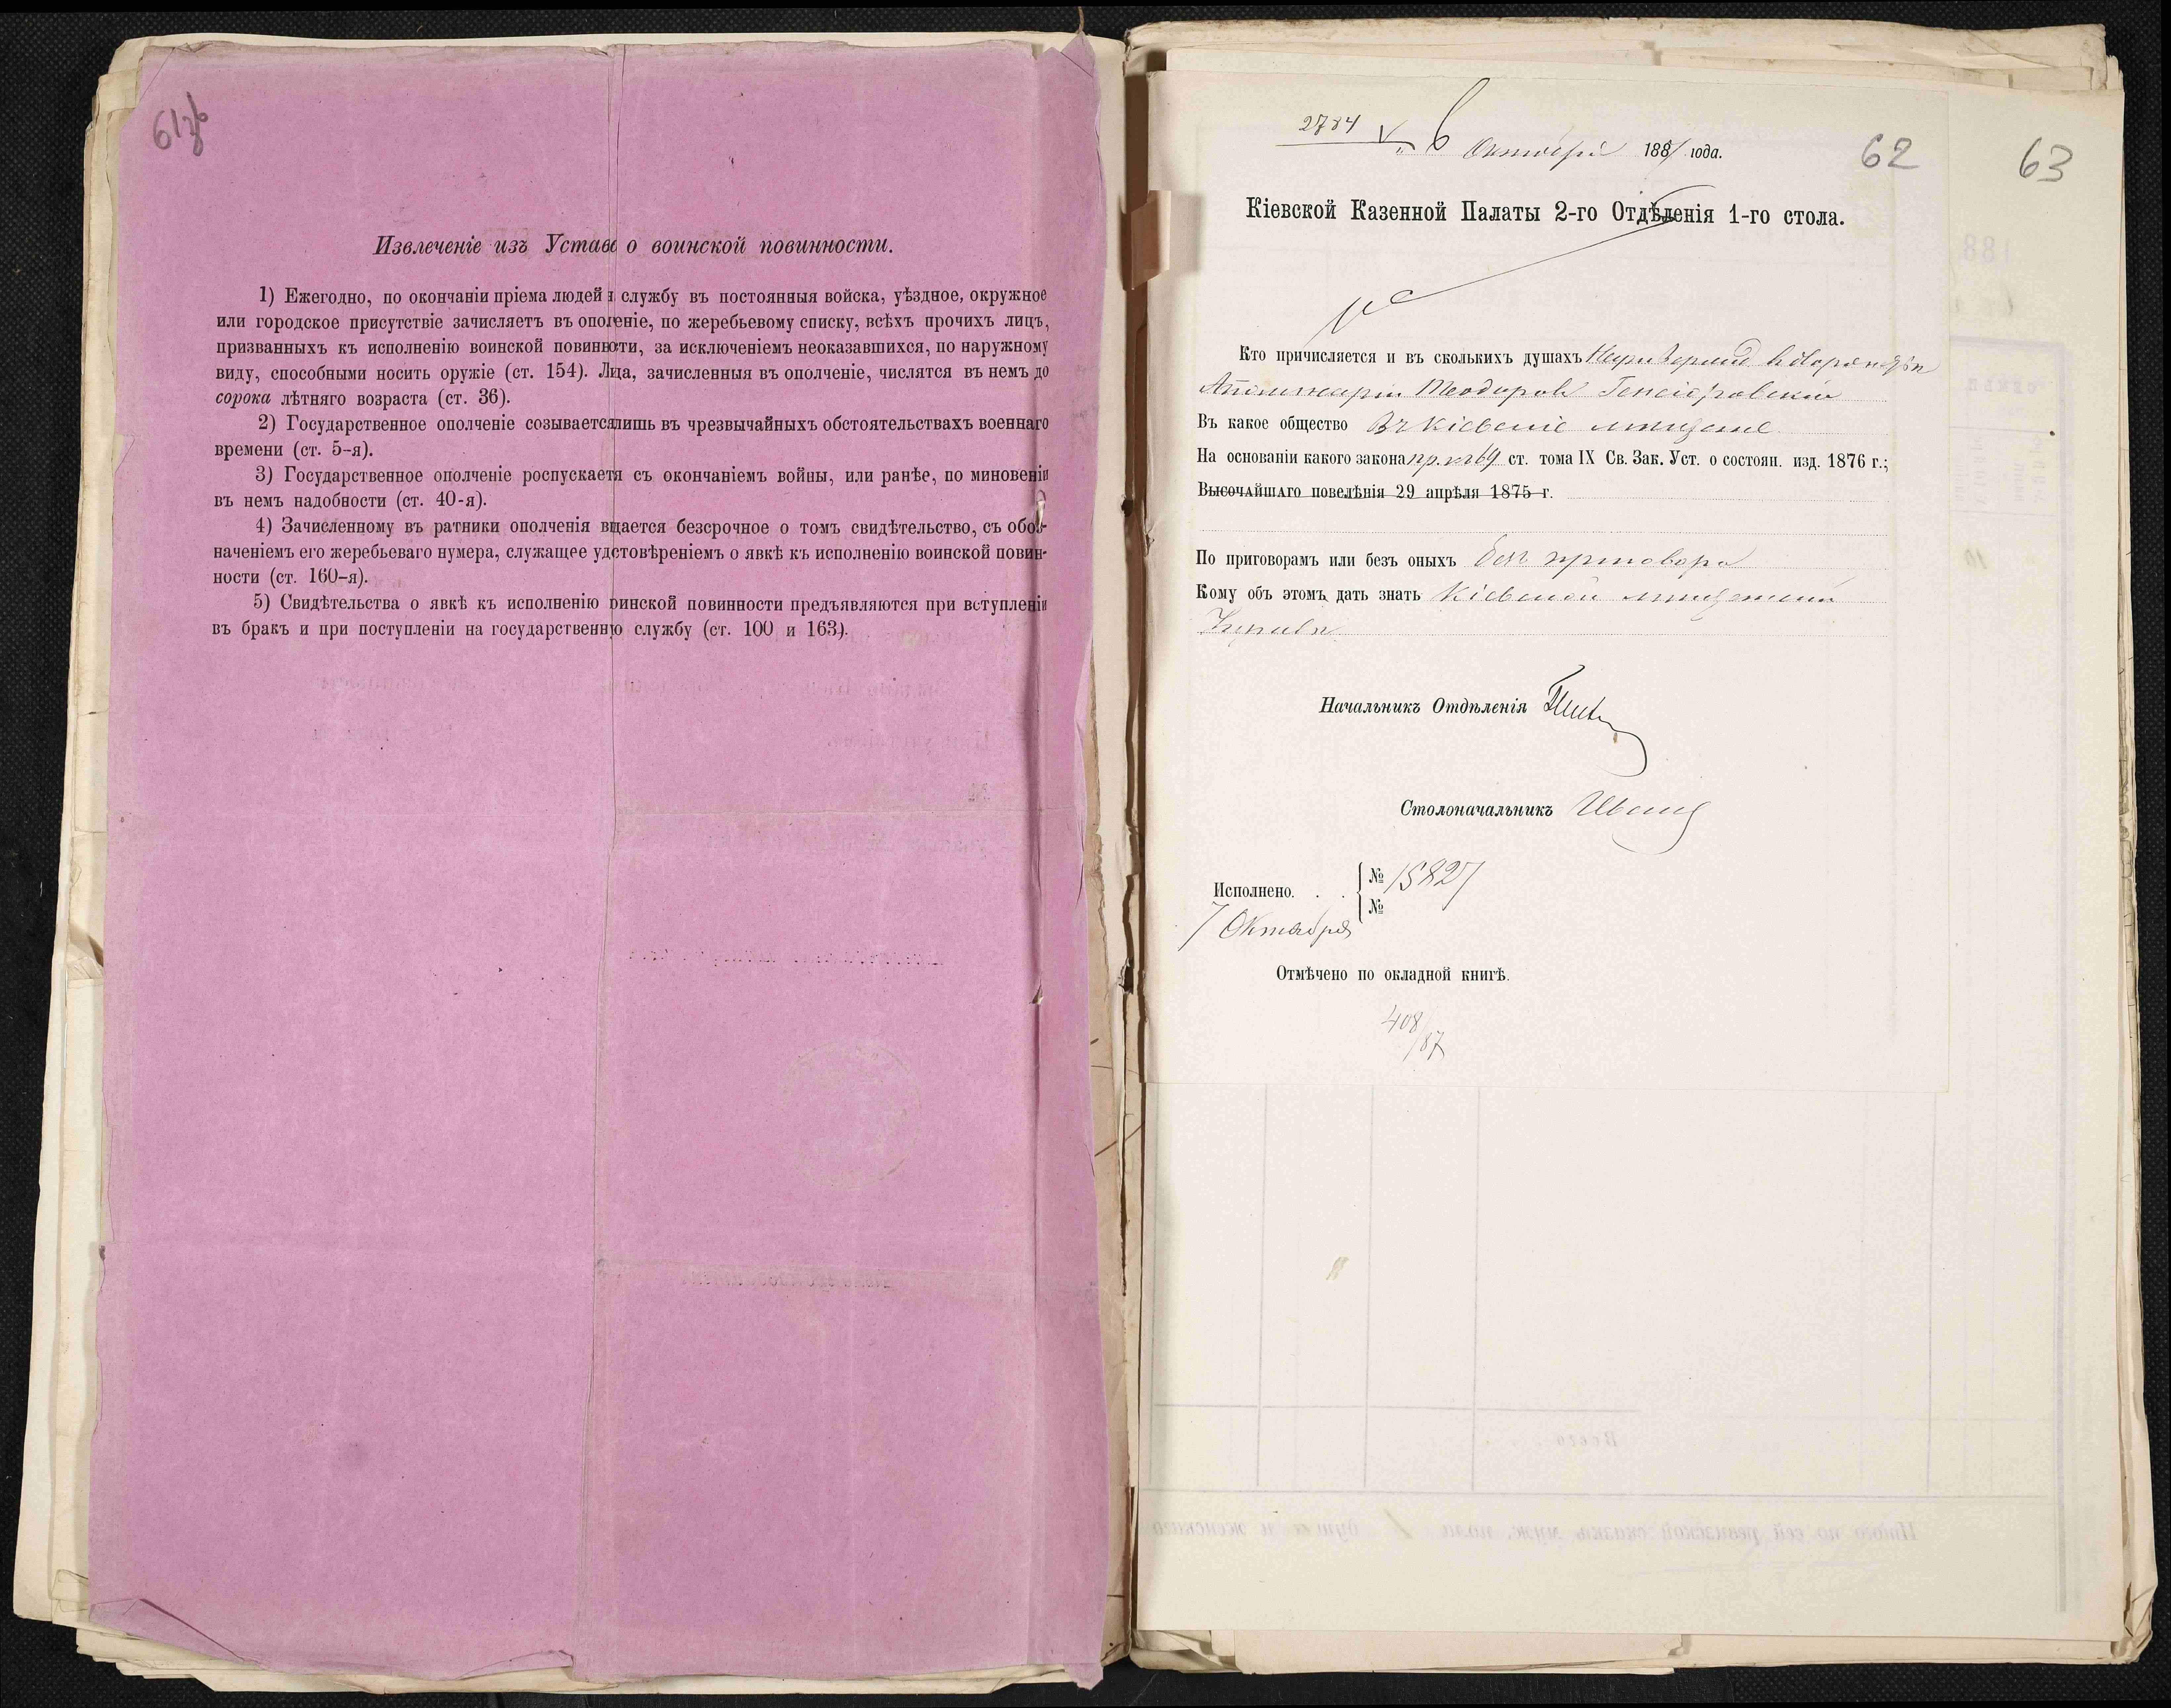 Извлеченіе изъ Устава о воинской повинности.
1) Ежегодно, по окончаніи пріема людей службу въ постоянныя войска, уѣздное, окружное
или городское присутствіе зачисляетъ въ ополеніе, по жеребьевому списку, всѣхъ прочихъ лицъ,
призванныхъ къ исполненію воинской повинности, за исключеніемъ неоказавшихся, по наружному
виду, способными носить оружіе (ст. 154). Лица, зачисленныя въ ополченіе, числятся въ немъ до
сорока лѣтняго возраста (ст. 36).
2) Государственное ополченіе созывается лишь въ чрезвычайныхъ обстоятельствахъ военнаго
времени (ст. 5-я).
3) Государственное ополченіе роспускается съ окончаніемъ войны, или ранѣе, по миновеніи
въ немъ надобности (ст. 40-я).
4) Зачисленному въ ратники ополченія выдается безсрочное о томъ свидѣтельство, съ обоз-
наченіемъ его жеребьеваго нумера, служащее удостовѣреніемъ о явкѣ къ исполненію воинской повин-
ности (ст. 160-я).
5) Свидѣтельства о явкѣ къ исполненію воинской повинности предъявляются при вступленіи
въ бракъ и при поступленіи на государственную службу (ст. 100 и 163).
2784
6 Октября 1887 года.
62
63
Кіевской Казенной Палаты 2-го Отдѣленія 1-го стола.
Кто причисляется и въ сколькихъ душахъ
Теодоровъ Генсіоровскій
Въ какое общество Въ Кіевскіе мѣщане
На основаніи какого закона пр. къ 69 ст. тома IX Св. Зак. Уст. о состоян. изд. 1876 г.;
Высочайшаго повелѣнія 29 апрѣля 1875 г.
По приговорамъ или безъ оныхъ безъ приговора
Кому объ этомъ дать знать Кіевской мѣщанской
Управѣ
Начальникъ Отдѣленія
Столоначальникъ
Исполнено. . . № 15827
№
7 Октября
Отмѣчено по окладной книгѣ.
408/87